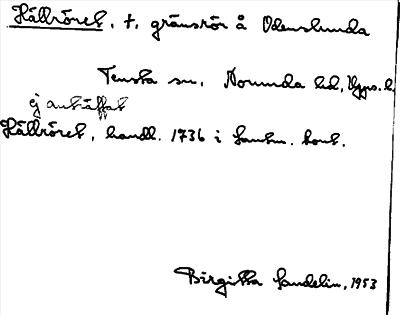 Hällröret, t, gränsrör å Odenslunda
Tensta sn, Norunda hd, Upps. l.
ej anträffat
Hällröret, handl. 1736 i lantm. kont.
Birgitta Sandelin, 1953